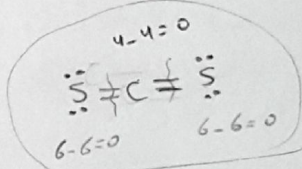 4-4=0
S = C = S
6-6=0 6-6=0